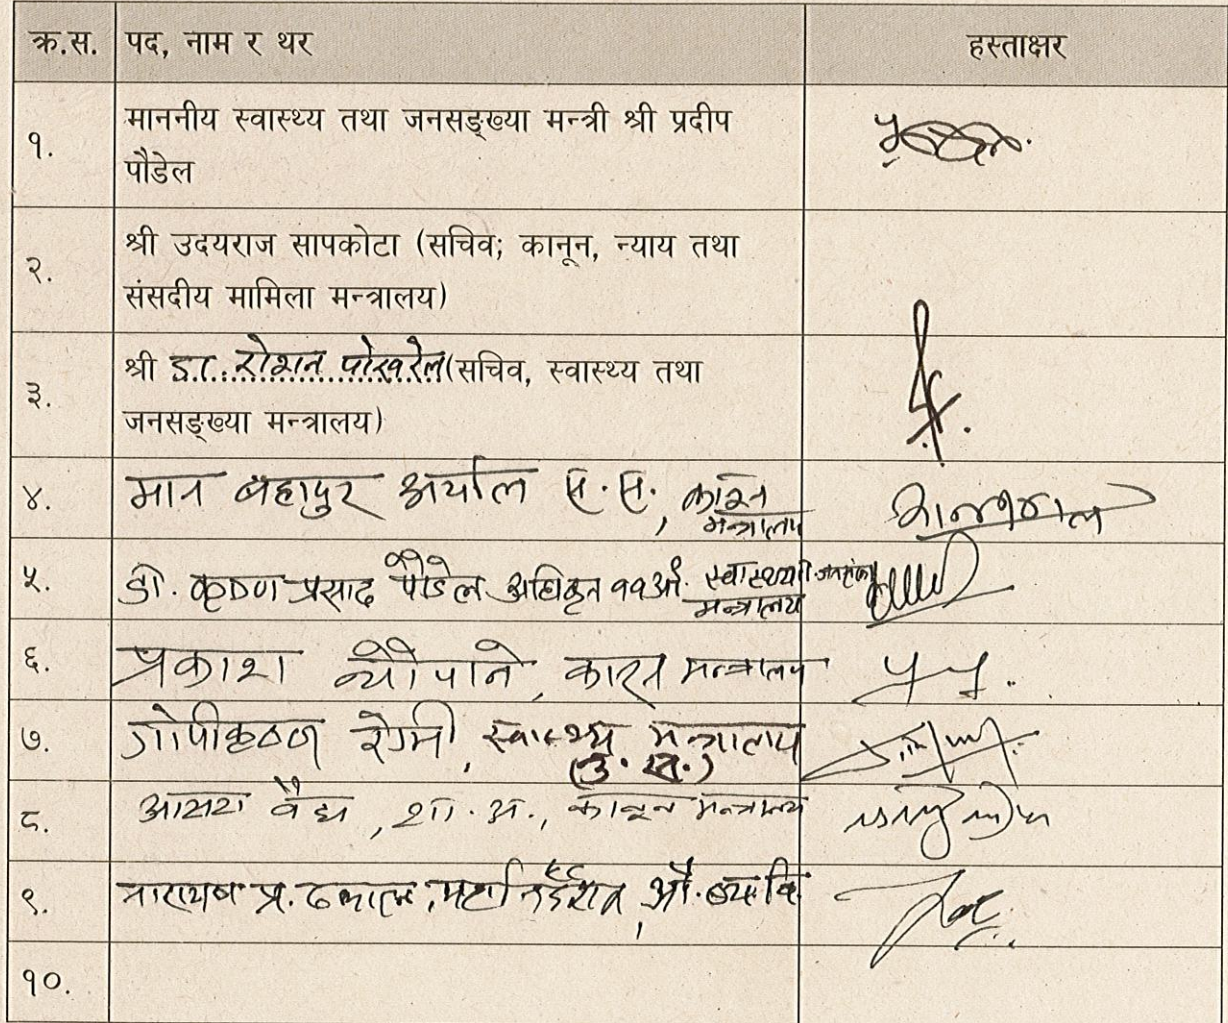 क्र.स. पद, नाम र थर हस्ताक्षर
१. माननीय स्वास्थ्य तथा जनसङ्ख्या मन्त्री श्री प्रदीप
पौडेल
२. श्री उदयराज सापकोटा (सचिव; कानून, न्याय तथा
संसदीय मामिला मन्त्रालय)
३. श्री डा. रोशन पोखरेल (सचिव, स्वास्थ्य तथा
जनसङ्ख्या मन्त्रालय)
४. मान बहादुर अर्याल स.स., कानून
मन्त्रालय
५. डा. कृष्ण प्रसाद पौडेल अधिकृत ११औं. स्वास्थ्य
मन्त्रालय
६. प्रकाश न्यौपाने, कानून मन्त्रालय
७. गोपीकृष्ण रेग्मी, स्वास्थ्य मन्त्रालय
(उ.स.)
८. वैद्य, शा.अ., कानून मन्त्रालय
९. नारायण प्र. ढकाल, महानिर्देशक, औ.व्य.वि
१०.